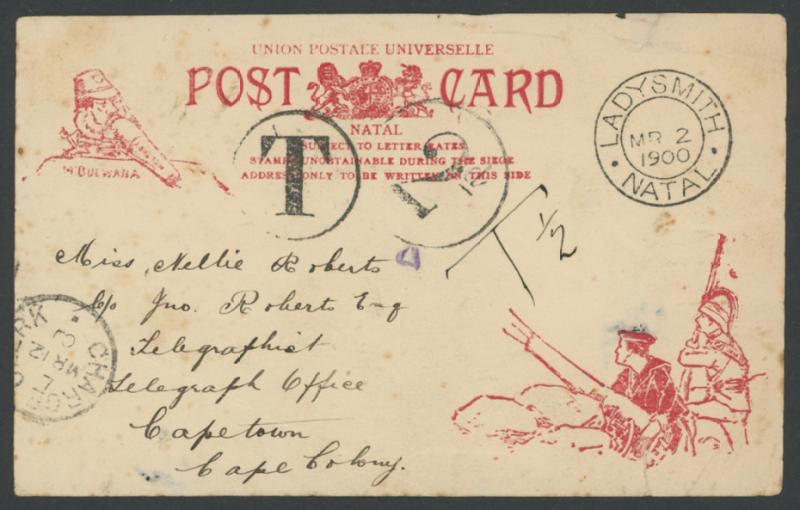 UNION POSTALE UNIVERSELLE
POST CARD
NATAL
SUBJECT TO LETTER RATES
STAMPS UNOBTAINABLE DURING THE SIEGE
ADDRESS ONLY TO BE WRITTEN ON THIS SIDE
M'BULWANA
LADYSMITH
MR 2
1900
NATAL
T
T 1/2
Miss Nellie Roberts
c/o Jno. Roberts Esq
Telegraphist
Telegraph Office
Capetown
Cape Colony.
CHARGE
MR 12